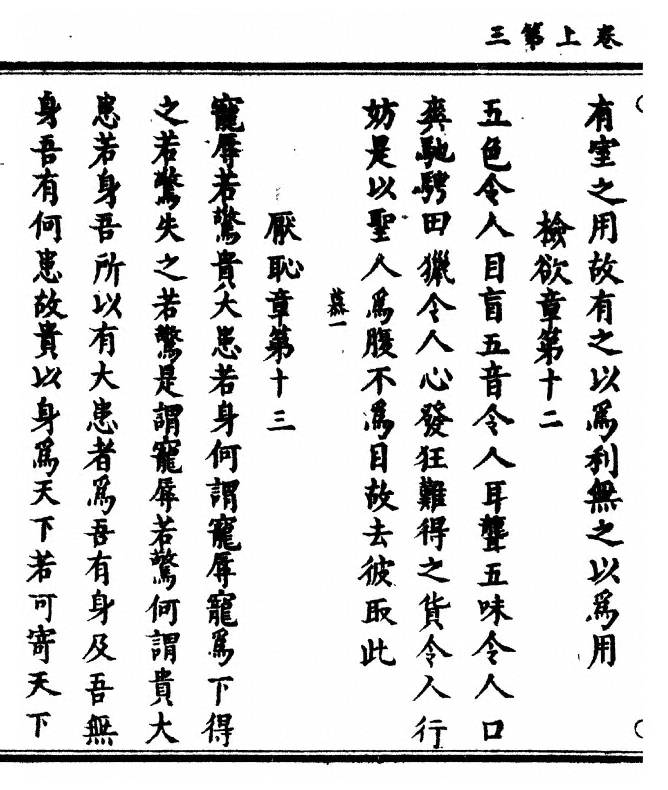 卷上第三
有室之用故有之以爲利無之以爲用
檢欲章第十二
五色令人目盲五音令人耳聾五味令人口
爽馳騁田獵令人心發狂難得之貨令人行
妨是以聖人爲腹不爲目故去彼取此
慕一
厭恥章第十三
寵辱若驚貴大患若身何謂寵辱寵爲下得
之若驚失之若驚是謂寵辱若驚何謂貴大
患若身吾所以有大患者爲吾有身及吾無
身吾有何患故貴以身爲天下若可寄天下